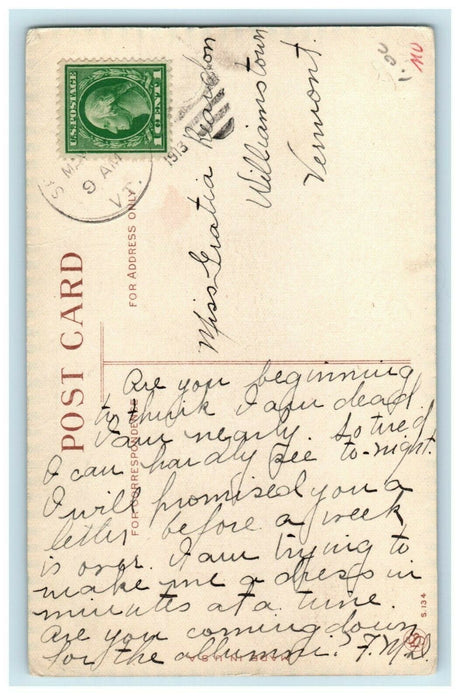 U.S. POSTAGE
1 CENT 1
MA
9 AM
VT.
1913
1.00
NV
POST CARD
FOR ADDRESS ONLY
FOR CORRESPONDENCE
Miss Gratia
Williamstown
Vermont.
Are you beginning
to think I am dead
I am nearly. So tired
I can hardly see to-night.
I will promised you a
letter before a week
is over. I am trying to
make me a dress in
minutes at a time.
Are you coming down
for the allumni? F.M.D.
S.134